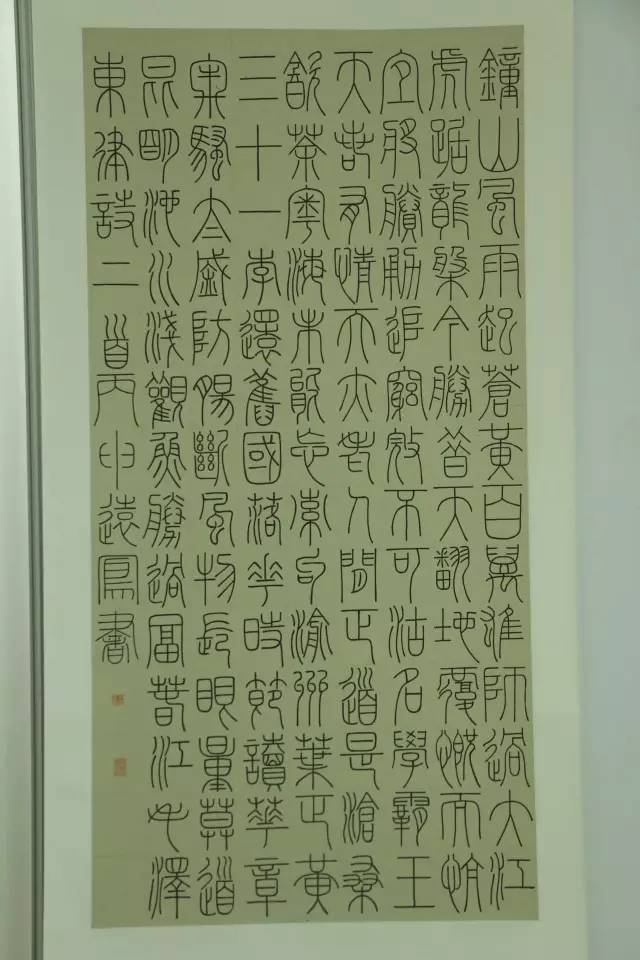 鐘山風雨起蒼黃百萬雄師過大江
虎踞龍盤今勝昔天翻地覆慨而慷
宜將剩勇追窮寇不可沽名學霸王
天若有情天亦老人間正道是滄桑
飲茶粵海未能忘索句渝州葉正黃
三十一年還舊國落花時節讀華章
牢騷太盛防腸斷風物長眼量莫道
昆明池水淺觀魚勝過富春江毛澤
東律詩二首丙申遠鳳書